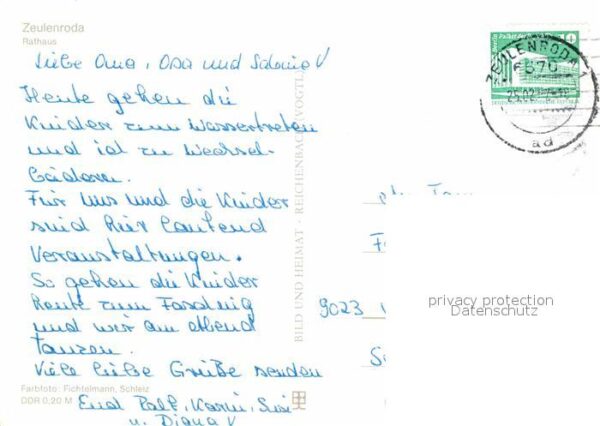 Zeulenroda
Rathaus
Liebe Oma, Opa und Sabine V
Heute gehen die
Kinder zum Wassertreten
und ich zu Wechsel-
bädern.
Für uns und die Kinder
sind hier laufend
Veranstaltungen.
So gehen die Kinder
heute zum Fasching
und wir am Abend
tanzen.
Viele liebe Grüße senden
Euch Ralf, Karin, Susi
u. Diana V
Farbfoto: Fichtelmann, Schleiz
DDR 0,20 M
BILD UND HEIMAT · REICHENBACH (VOGTL
ZEULENRODA 1
6570
ad
10
Fa
9023
S
privacy protection
Datenschutz